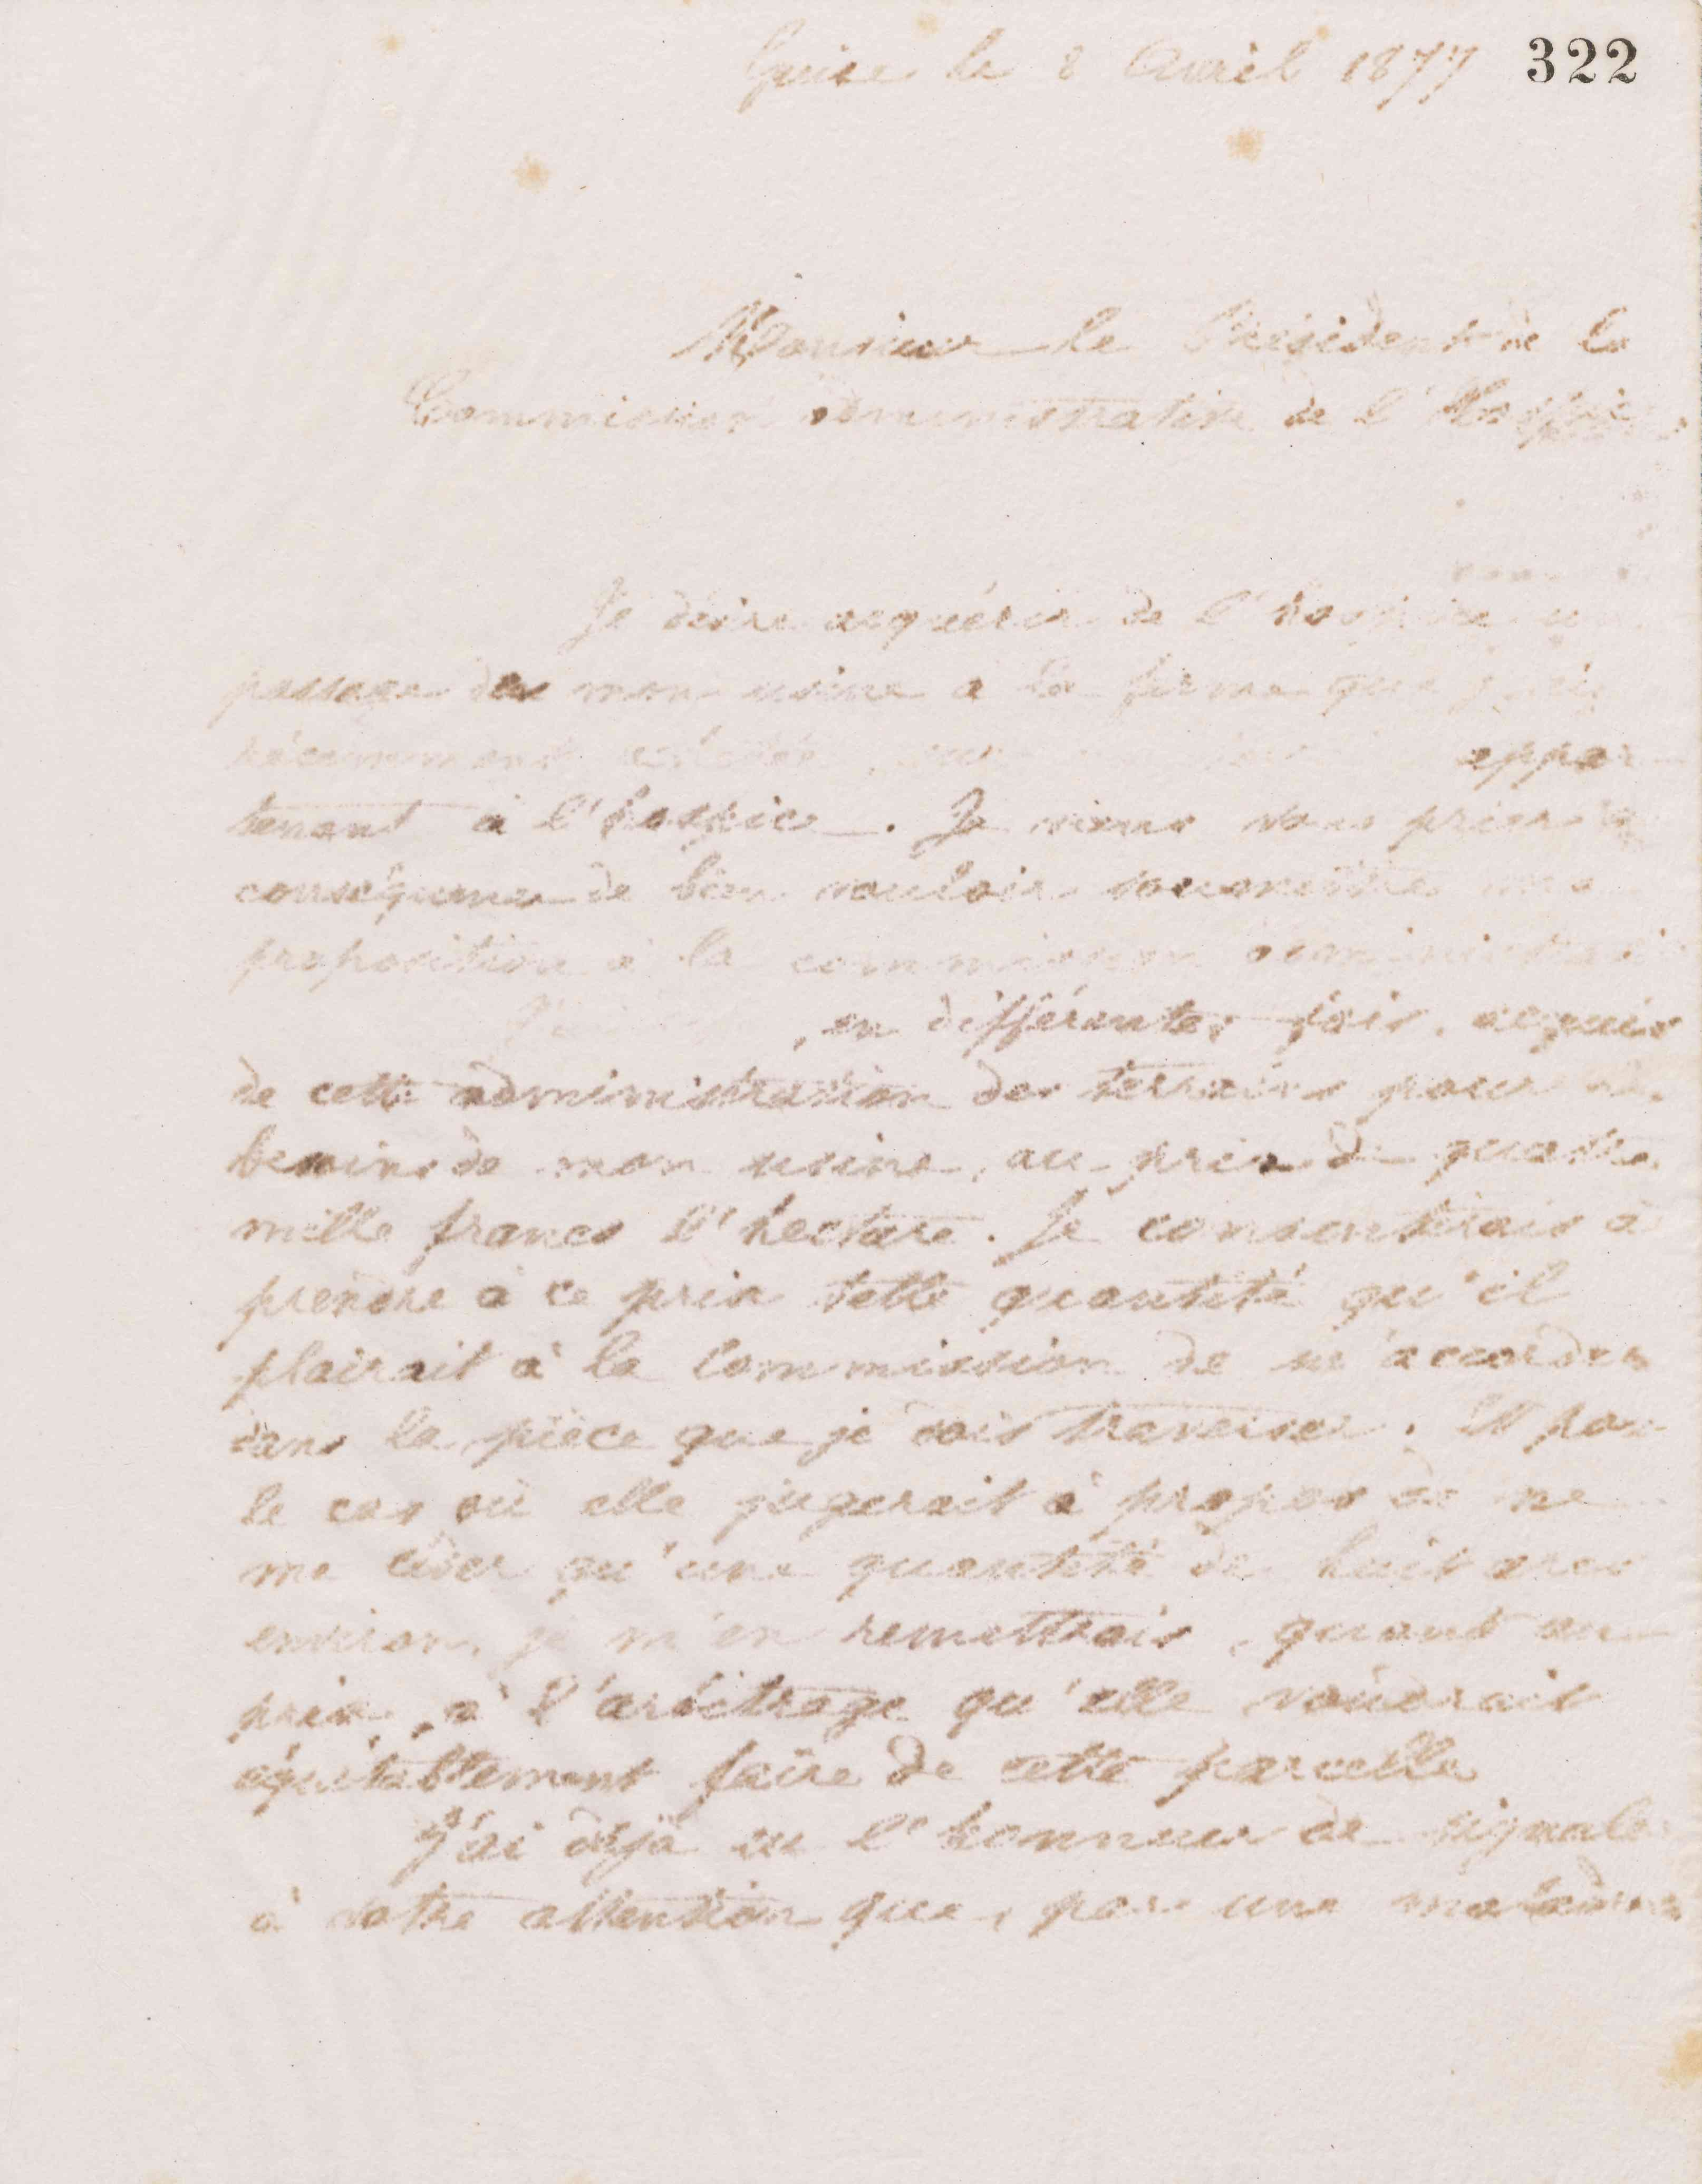 Guise le 8 Avril 1877 322
Monsieur le Président de la
Commission administrative de l'Hospice
Je désire acquérir de l'hospice un
passage de mon usine à la ferme que j'ai
récemment achetée, appar-
tenant à l'hospice. Je viens vous prier en
conséquence de bien vouloir soumettre ma
proposition à la commission administrative
J'ai, en différentes fois, acquis
de cette administration des terrains pour les
besoins de mon usine, au prix de quatre
mille francs l'hectare. Je consentirais à
prendre à ce prix telle quantité qu'il
plairait à la Commission de m'accorder
dans la pièce que je dois traverser. Et pour
le cas où elle jugerait à propos de ne
me céder qu'une quantité de huit ares
environ, je m'en remettrais, quant au
prix, à l'arbitrage qu'elle voudrait
équitablement faire de cette parcelle
J'ai déjà eu l'honneur de signaler
à votre attention que, par une maladresse